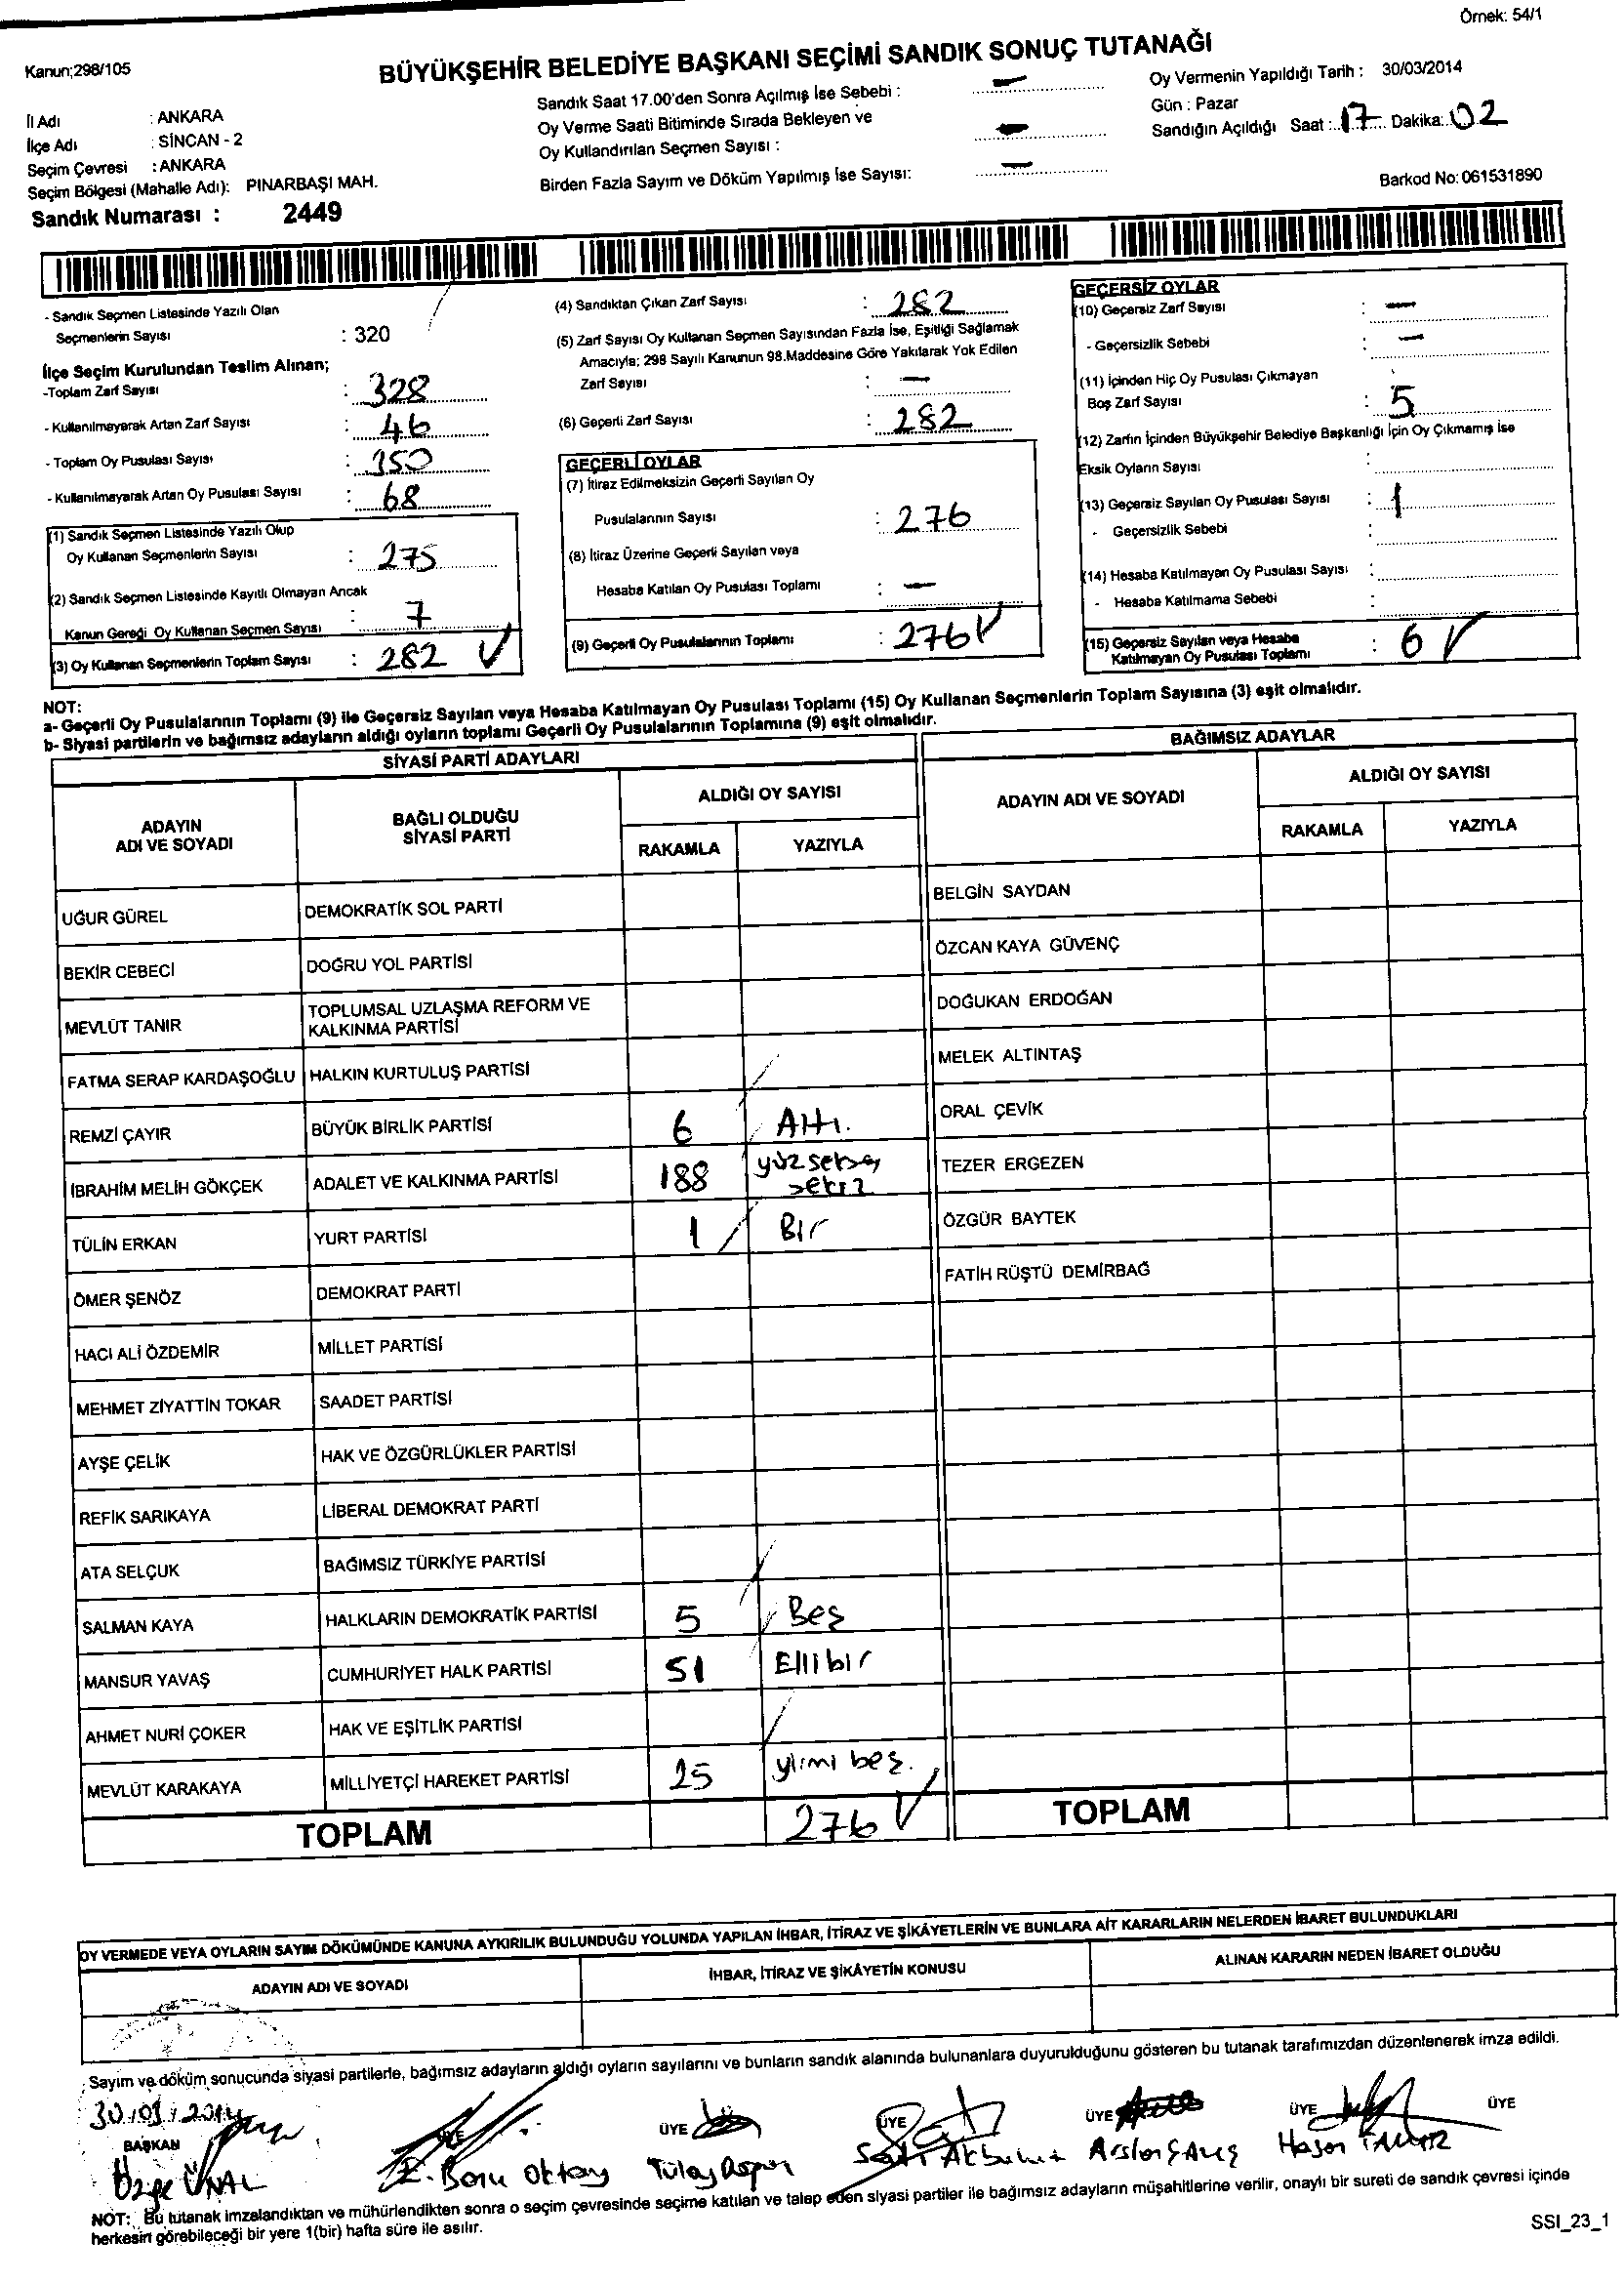 Örnek: 54/1
Kanun;298/105
BÜYÜKŞEHİR BELEDİYE BAŞKANI SEÇİMİ SANDIK SONUÇ TUTANAĞI
İl Adı : ANKARA
İlçe Adı : SİNCAN - 2
Seçim Çevresi : ANKARA
Seçim Bölgesi (Mahalle Adı): PINARBAŞI MAH.
Sandık Numarası : 2449
Sandık Saat 17.00'den Sonra Açılmış İse Sebebi : -
Oy Verme Saati Bitiminde Sırada Bekleyen ve
Oy Kullandırılan Seçmen Sayısı : -
Birden Fazla Sayım ve Döküm Yapılmış İse Sayısı: -
Oy Vermenin Yapıldığı Tarih : 30/03/2014
Gün : Pazar
Sandığın Açıldığı Saat : 17 Dakika: 02
Barkod No: 061531890
- Sandık Seçmen Listesinde Yazılı Olan
Seçmenlerin Sayısı : 320
İlçe Seçim Kurulundan Teslim Alınan;
-Toplam Zarf Sayısı : 328
- Kullanılmayarak Artan Zarf Sayısı : 46
- Toplam Oy Pusulası Sayısı : 350
- Kullanılmayarak Artan Oy Pusulası Sayısı : 68
(1) Sandık Seçmen Listesinde Yazılı Olup
Oy Kullanan Seçmenlerin Sayısı : 275
(2) Sandık Seçmen Listesinde Kayıtlı Olmayan Ancak
Kanun Gereği Oy Kullanan Seçmen Sayısı : 7
(3) Oy Kullanan Seçmenlerin Toplam Sayısı : 282 √
(4) Sandıktan Çıkan Zarf Sayısı : 282
(5) Zarf Sayısı Oy Kullanan Seçmen Sayısından Fazla İse, Eşitliği Sağlamak
Amacıyla; 298 Sayılı Kanunun 98.Maddesine Göre Yakılarak Yok Edilen
Zarf Sayısı : -
(6) Geçerli Zarf Sayısı : 282
GEÇERLİ OYLAR
(7) İtiraz Edilmeksizin Geçerli Sayılan Oy
Pusulalarının Sayısı : 276
(8) İtiraz Üzerine Geçerli Sayılan veya
Hesaba Katılan Oy Pusulası Toplamı : -
(9) Geçerli Oy Pusulalarının Toplamı : 276 √
GEÇERSİZ OYLAR
(10) Geçersiz Zarf Sayısı : -
- Geçersizlik Sebebi : -
(11) İçinden Hiç Oy Pusulası Çıkmayan
Boş Zarf Sayısı : 5
(12) Zarfın İçinden Büyükşehir Belediye Başkanlığı İçin Oy Çıkmamış İse
Eksik Oyların Sayısı :
(13) Geçersiz Sayılan Oy Pusulası Sayısı : 1
- Geçersizlik Sebebi :
(14) Hesaba Katılmayan Oy Pusulası Sayısı :
- Hesaba Katılmama Sebebi :
(15) Geçersiz Sayılan veya Hesaba
Katılmayan Oy Pusulası Toplamı : 6 √
NOT:
a- Geçerli Oy Pusulalarının Toplamı (9) ile Geçersiz Sayılan veya Hesaba Katılmayan Oy Pusulası Toplamı (15) Oy Kullanan Seçmenlerin Toplam Sayısına (3) eşit olmalıdır.
b- Siyasi partilerin ve bağımsız adayların aldığı oyların toplamı Geçerli Oy Pusulalarının Toplamına (9) eşit olmalıdır.
SİYASİ PARTİ ADAYLARI
ADAYIN ADI VE SOYADI
BAĞLI OLDUĞU SİYASİ PARTİ
ALDIĞI OY SAYISI
RAKAMLA YAZIYLA
UĞUR GÜREL DEMOKRATİK SOL PARTİ
BEKİR CEBECİ DOĞRU YOL PARTİSİ
MEVLÜT TANIR TOPLUMSAL UZLAŞMA REFORM VE
KALKINMA PARTİSİ
FATMA SERAP KARDAŞOĞLU HALKIN KURTULUŞ PARTİSİ
REMZİ ÇAYIR BÜYÜK BİRLİK PARTİSİ 6 Altı.
İBRAHİM MELİH GÖKÇEK ADALET VE KALKINMA PARTİSİ 188 yüz seksen
sekiz
TÜLİN ERKAN YURT PARTİSİ 1 Bir
ÖMER ŞENÖZ DEMOKRAT PARTİ
HACI ALİ ÖZDEMİR MİLLET PARTİSİ
MEHMET ZİYATTİN TOKAR SAADET PARTİSİ
AYŞE ÇELİK HAK VE ÖZGÜRLÜKLER PARTİSİ
REFİK SARIKAYA LİBERAL DEMOKRAT PARTİ
ATA SELÇUK BAĞIMSIZ TÜRKİYE PARTİSİ
SALMAN KAYA HALKLARIN DEMOKRATİK PARTİSİ 5 Beş
MANSUR YAVAŞ CUMHURİYET HALK PARTİSİ 51 Ellibir
AHMET NURİ ÇOKER HAK VE EŞİTLİK PARTİSİ
MEVLÜT KARAKAYA MİLLİYETÇİ HAREKET PARTİSİ 25 yirmi beş.
TOPLAM 276 √
BAĞIMSIZ ADAYLAR
ADAYIN ADI VE SOYADI
ALDIĞI OY SAYISI
RAKAMLA YAZIYLA
BELGİN SAYDAN
ÖZCAN KAYA GÜVENÇ
DOĞUKAN ERDOĞAN
MELEK ALTINTAŞ
ORAL ÇEVİK
TEZER ERGEZEN
ÖZGÜR BAYTEK
FATİH RÜŞTÜ DEMİRBAĞ
TOPLAM
OY VERMEDE VEYA OYLARIN SAYIM DÖKÜMÜNDE KANUNA AYKIRILIK BULUNDUĞU YOLUNDA YAPILAN İHBAR, İTİRAZ VE ŞİKÂYETLERİN VE BUNLARA AİT KARARLARIN NELERDEN İBARET BULUNDUKLARI
ADAYIN ADI VE SOYADI İHBAR, İTİRAZ VE ŞİKÂYETİN KONUSU ALINAN KARARIN NEDEN İBARET OLDUĞU
Sayım ve döküm sonucunda siyasi partilerle, bağımsız adayların aldığı oyların sayılarını ve bunların sandık alanında bulunanlara duyurulduğunu gösteren bu tutanak tarafımızdan düzenlenerek imza edildi.
30/03/2014
BAŞKAN ÜYE ÜYE ÜYE ÜYE ÜYE
Özge ÜNAL E. Banu Oktay Tülay Hasan
NOT: Bu tutanak imzalandıktan ve mühürlendikten sonra o seçim çevresinde seçime katılan ve talep eden siyasi partiler ile bağımsız adayların müşahitlerine verilir, onaylı bir sureti de sandık çevresi içinde
herkesin görebileceği bir yere 1(bir) hafta süre ile asılır.
SSI_23_1